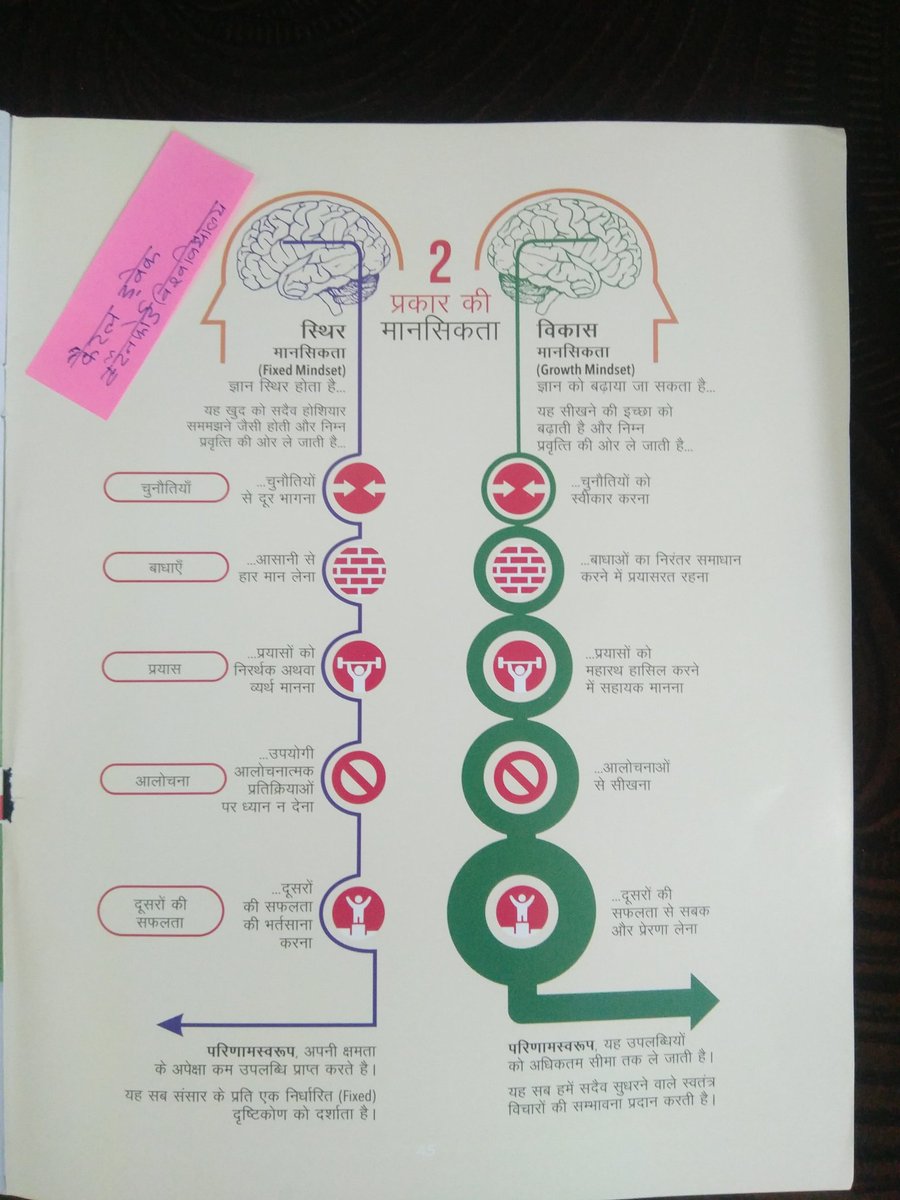 कैरल ड्वेक
स्टैनफोर्ड विश्वविद्यालय
2
प्रकार की
मानसिकता
स्थिर
मानसिकता
(Fixed Mindset)
ज्ञान स्थिर होता है...
यह खुद को सदैव होशियार
सममझने जैसी होती और निम्न
प्रवृत्ति की ओर ले जाती है...
विकास
मानसिकता
(Growth Mindset)
ज्ञान को बढ़ाया जा सकता है...
यह सीखने की इच्छा को
बढ़ाती है और निम्न
प्रवृत्ति की ओर ले जाती है...
चुनौतियाँ
...चुनौतियों
से दूर भागना
...चुनौतियों को
स्वीकार करना
बाधाएँ
...आसानी से
हार मान लेना
...बाधाओं का निरंतर समाधान
करने में प्रयासरत रहना
प्रयास
...प्रयासों को
निरर्थक अथवा
व्यर्थ मानना
...प्रयासों को
महारथ हासिल करने
में सहायक मानना
आलोचना
...उपयोगी
आलोचनात्मक
प्रतिक्रियाओं
पर ध्यान न देना
...आलोचनाओं
से सीखना
दूसरों की
सफलता
...दूसरों
की सफलता
की भर्तसाना
करना
...दूसरों की
सफलता से सबक
और प्रेरणा लेना
परिणामस्वरूप, अपनी क्षमता
के अपेक्षा कम उपलब्धि प्राप्त करते है।
यह सब संसार के प्रति एक निर्धारित (Fixed)
दृष्टिकोण को दर्शाता है।
परिणामस्वरूप, यह उपलब्धियों
को अधिकतम सीमा तक ले जाती है।
यह सब हमें सदैव सुधरने वाले स्वतंत्र
विचारों की सम्भावना प्रदान करती है।
45